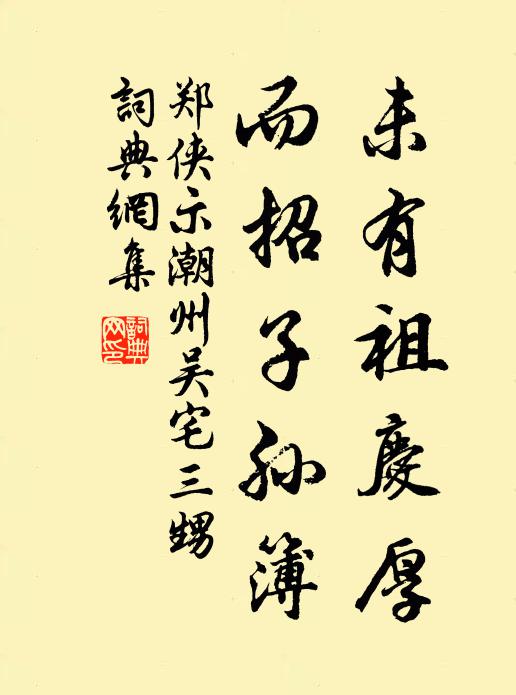 未有祖慶厚
而招子孙簿
郑侠示潮州吴宅三甥
詞典網集
詞典网印